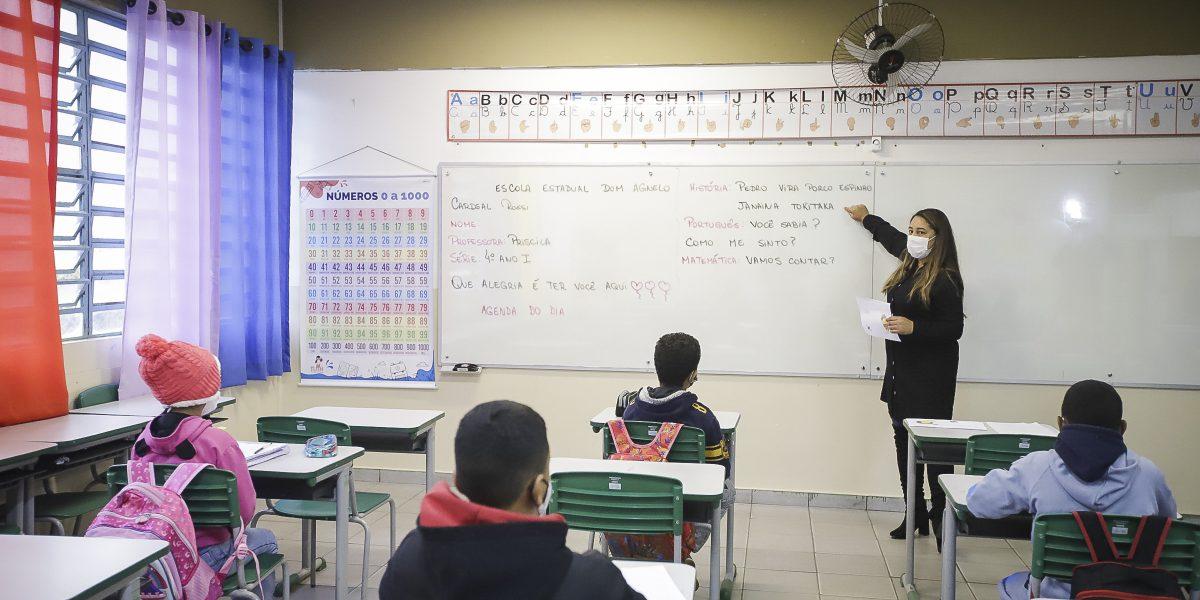 A a B b C c D d E e F f G g H h I i J j K k L l M m N n O o P p Q q R r S s T t U u V
NÚMEROS 0 a 1000
0 1 2 3 4 5 6 7 8 9
10 11 12 13 14 15 16 17 18 19
20 21 22 23 24 25 26 27 28 29
30 31 32 33 34 35 36 37 38 39
40 41 42 43 44 45 46 47 48 49
50 51 52 53 54 55 56 57 58 59
60 61 62 63 64 65 66 67 68 69
70 71 72 73 74 75 76 77 78 79
80 81 82 83 84 85 86 87 88 89
90 91 92 93 94 95 96 97 98 99
100 200 300 400 500 600 700 800 900 1000
ESCOLA ESTADUAL DOM AGNELO
CARDEAL ROSSI
NOME
PROFESSORA: PRISCILA
SÉRIE: 4º ANO I
QUE ALEGRIA É TER VOCÊ AQUI
AGENDA DO DIA
HISTÓRIA: PEDRO VIRA PORCO ESPINHO
JANAINA TOKITAKA
PORTUGUÊS: VOCÊ SABIA?
COMO ME SINTO?
MATEMÁTICA: VAMOS CONTAR?